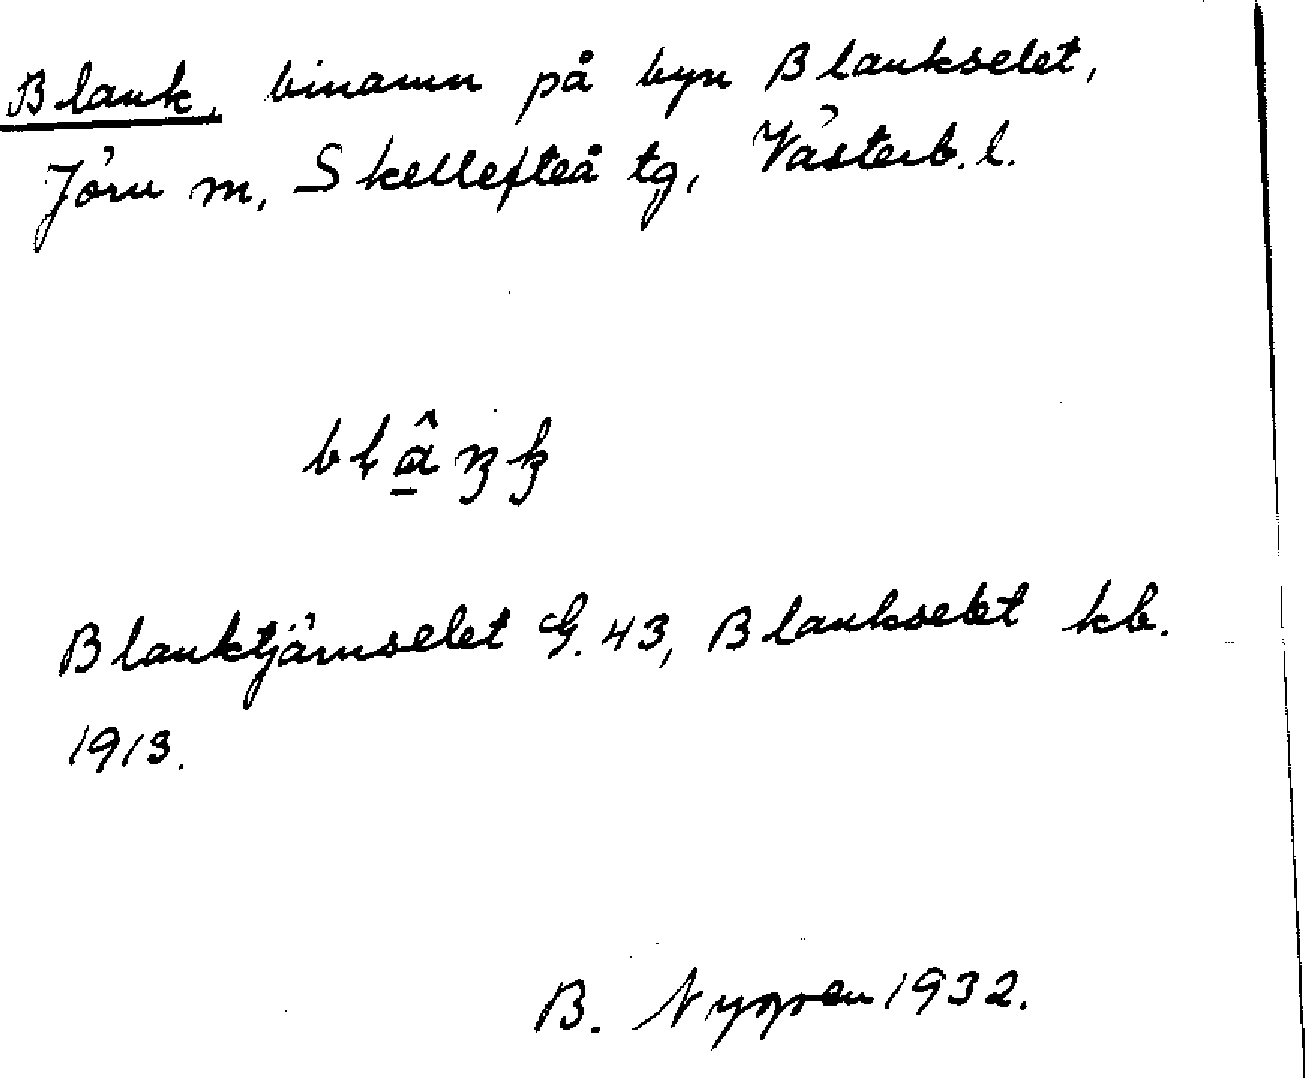 Blank, binamn på byn Blankselet,
Jörn m, Skellefteå tg, Västerb. l.
Blanktjärnselet G. 43, Blankselet kb.
1913.
B. Nygren 1932.